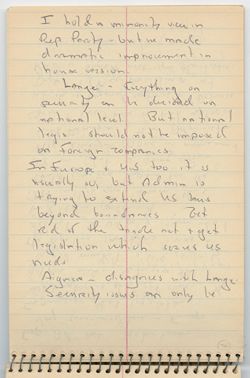 I hold a minority view in
Rep Party - but we made
dramatic improvement in
house version.
Lange - Everything on
security can be decided on
national level. But national
legis should not be imposed
on foreign companies.
In Europe + US too it is
usually so, but Admin is
trying to extend US laws
beyond boundaries Get
rid of the trade not + get
legislation which serves US
needs
Aigner - disagrees with Lange.
Security issues can only be